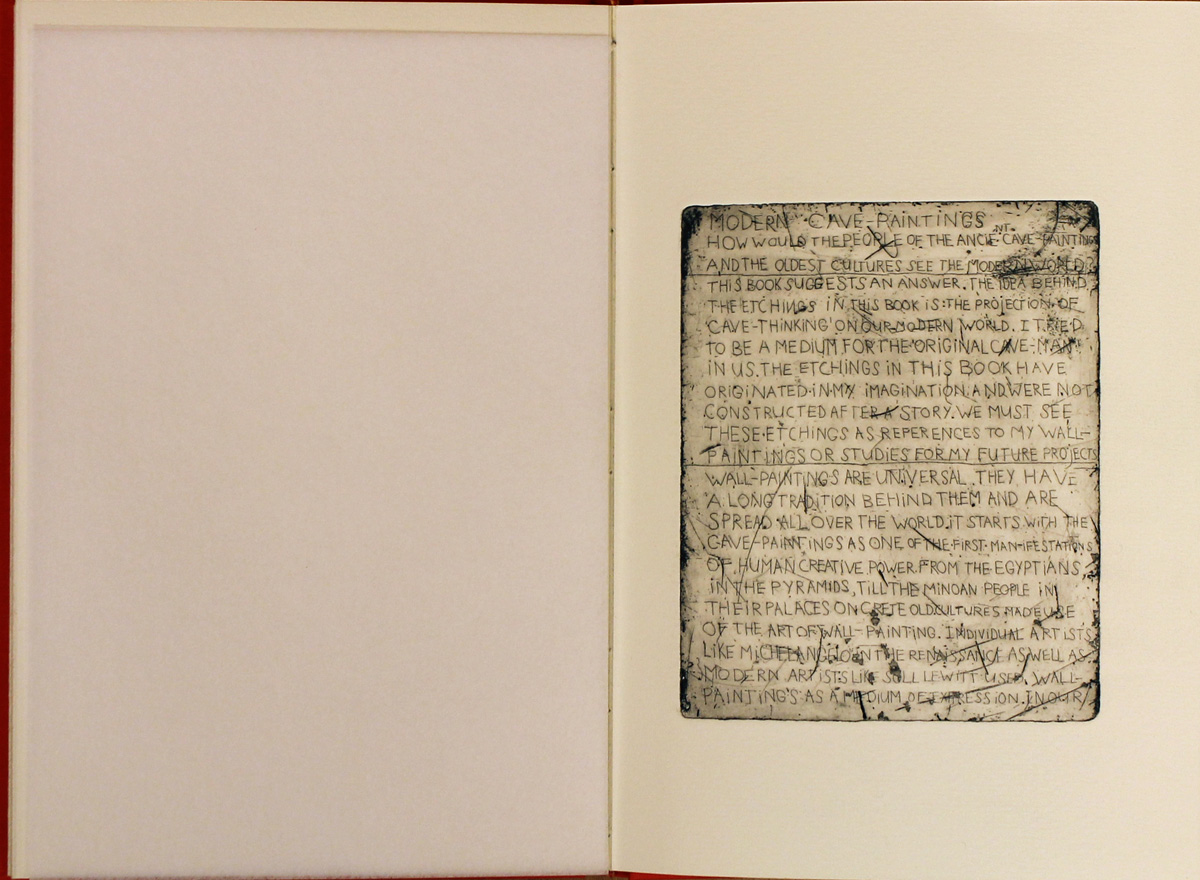 MODERN CAVE-PAINTINGS
HOW WOULD THE PEOPLE OF THE ANCIENT CAVE-PAINTINGS
AND THE OLDEST CULTURES SEE THE MODERN WORLD?
THIS BOOK SUGGESTS AN ANSWER. THE IDEA BEHIND
THE ETCHINGS IN THIS BOOK IS: THE PROJECTION OF
'CAVE-THINKING' ON OUR MODERN WORLD. I TRIED
TO BE A MEDIUM FOR THE ORIGINAL CAVE-MAN
IN US. THE ETCHINGS IN THIS BOOK HAVE
ORIGINATED IN MY IMAGINATION AND WERE NOT
CONSTRUCTED AFTER A STORY. WE MUST SEE
THESE ETCHINGS AS REFERENCES TO MY WALL-
PAINTINGS OR STUDIES FOR MY FUTURE PROJECTS
WALL-PAINTINGS ARE UNIVERSAL. THEY HAVE
A LONG TRADITION BEHIND THEM AND ARE
SPREAD ALL OVER THE WORLD. IT STARTS WITH THE
CAVE-PAINTINGS AS ONE OF THE FIRST MAN-IFESTATIONS
OF HUMAN CREATIVE POWER. FROM THE EGYPTIANS,
IN THE PYRAMIDS, TILL THE MINOAN PEOPLE IN
THEIR PALACES ON CRETE OLD CULTURES MADE USE
OF THE ART OF WALL-PAINTING. INDIVIDUAL ARTISTS
LIKE MICHELANGELO IN THE RENAISSANCE AS WELL AS
MODERN ARTISTS LIKE SOLL LEWITT USED WALL-
PAINTINGS AS A MEDIUM OF EXPRESSION. IN OUR